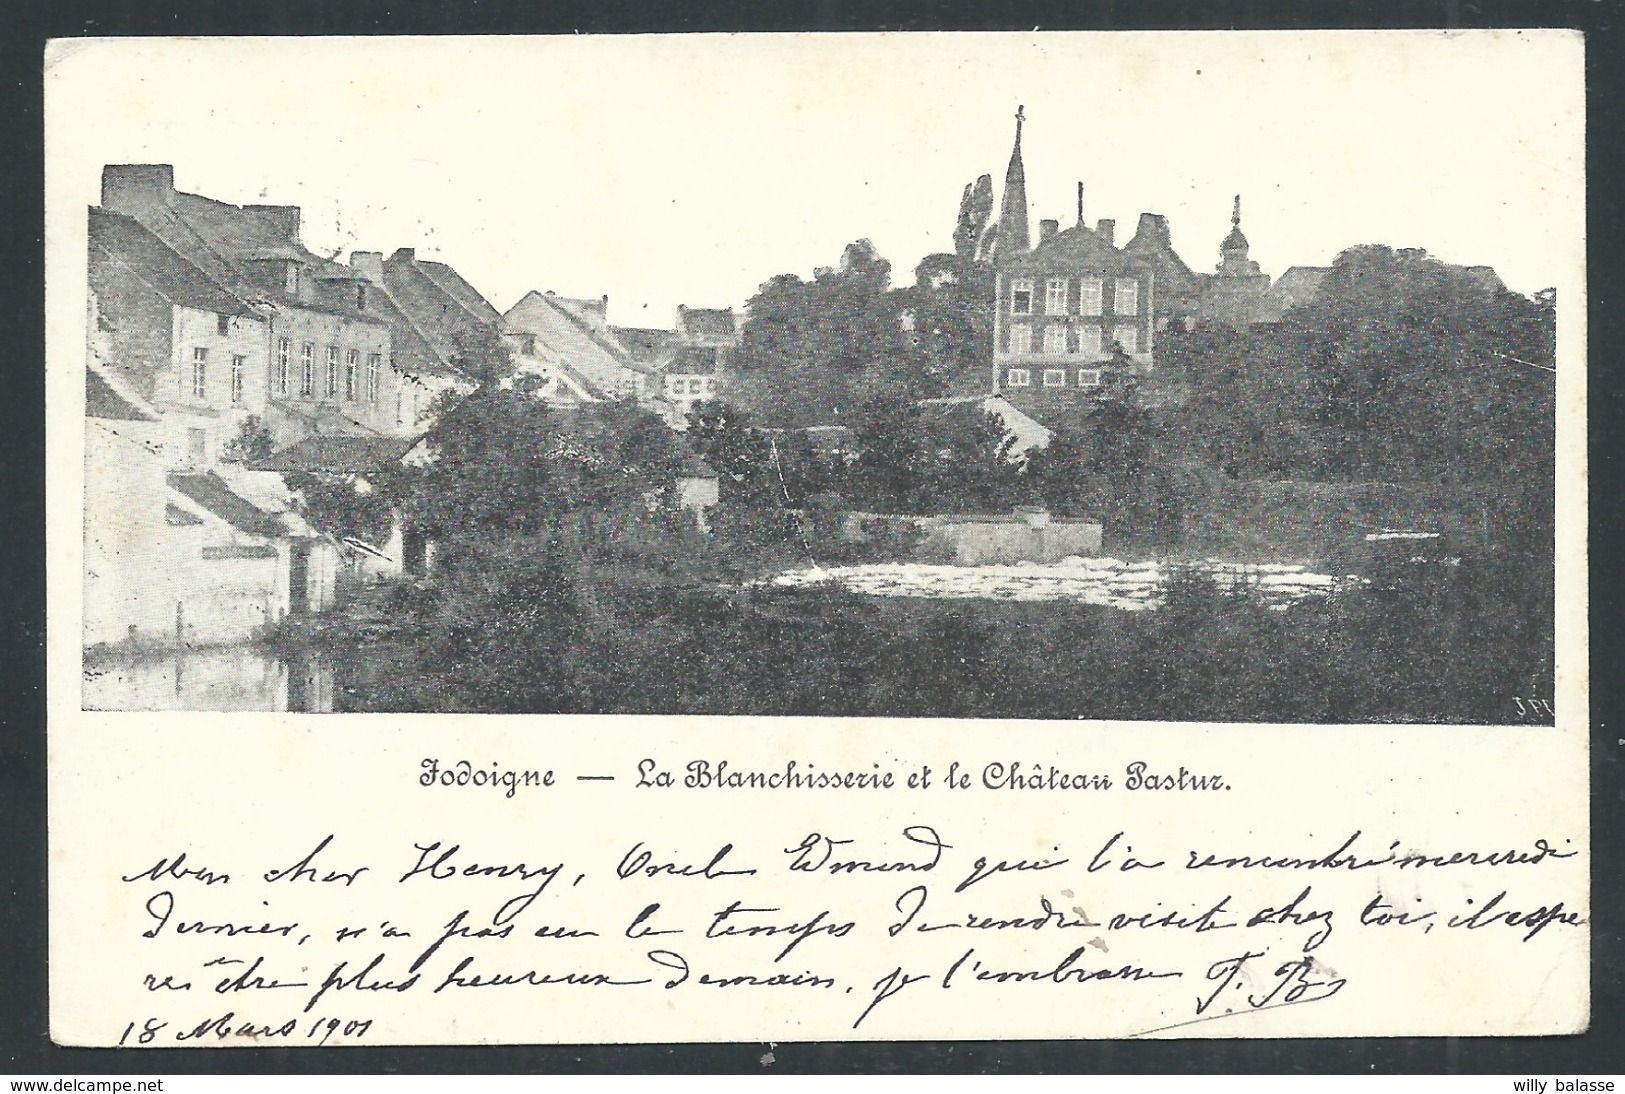 J.P.J.
Jodoigne — La Blanchisserie et le Château Pastur.
Mon cher Henry, Oncle Edmond qui l'a rencontré mercredi
dernier, n'a pas eu le temps de rendre visite chez toi, il espe
re être plus heureux demain, je l'embrasse
18 Mars 1901
delcampe.net
willy balasse